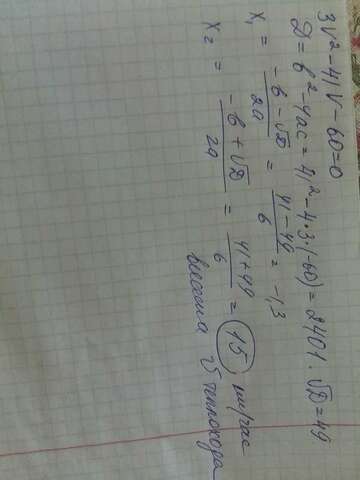 3V²-41V-60=0
D=b²-4ac=41²-4·3·(-60)=2401. √D=49
X₁ = (-b-√D)/2a = (41-49)/6 = -1,3
X₂ = (-b+√D)/2a = (41+49)/6 = 15 км/час
V теплохода